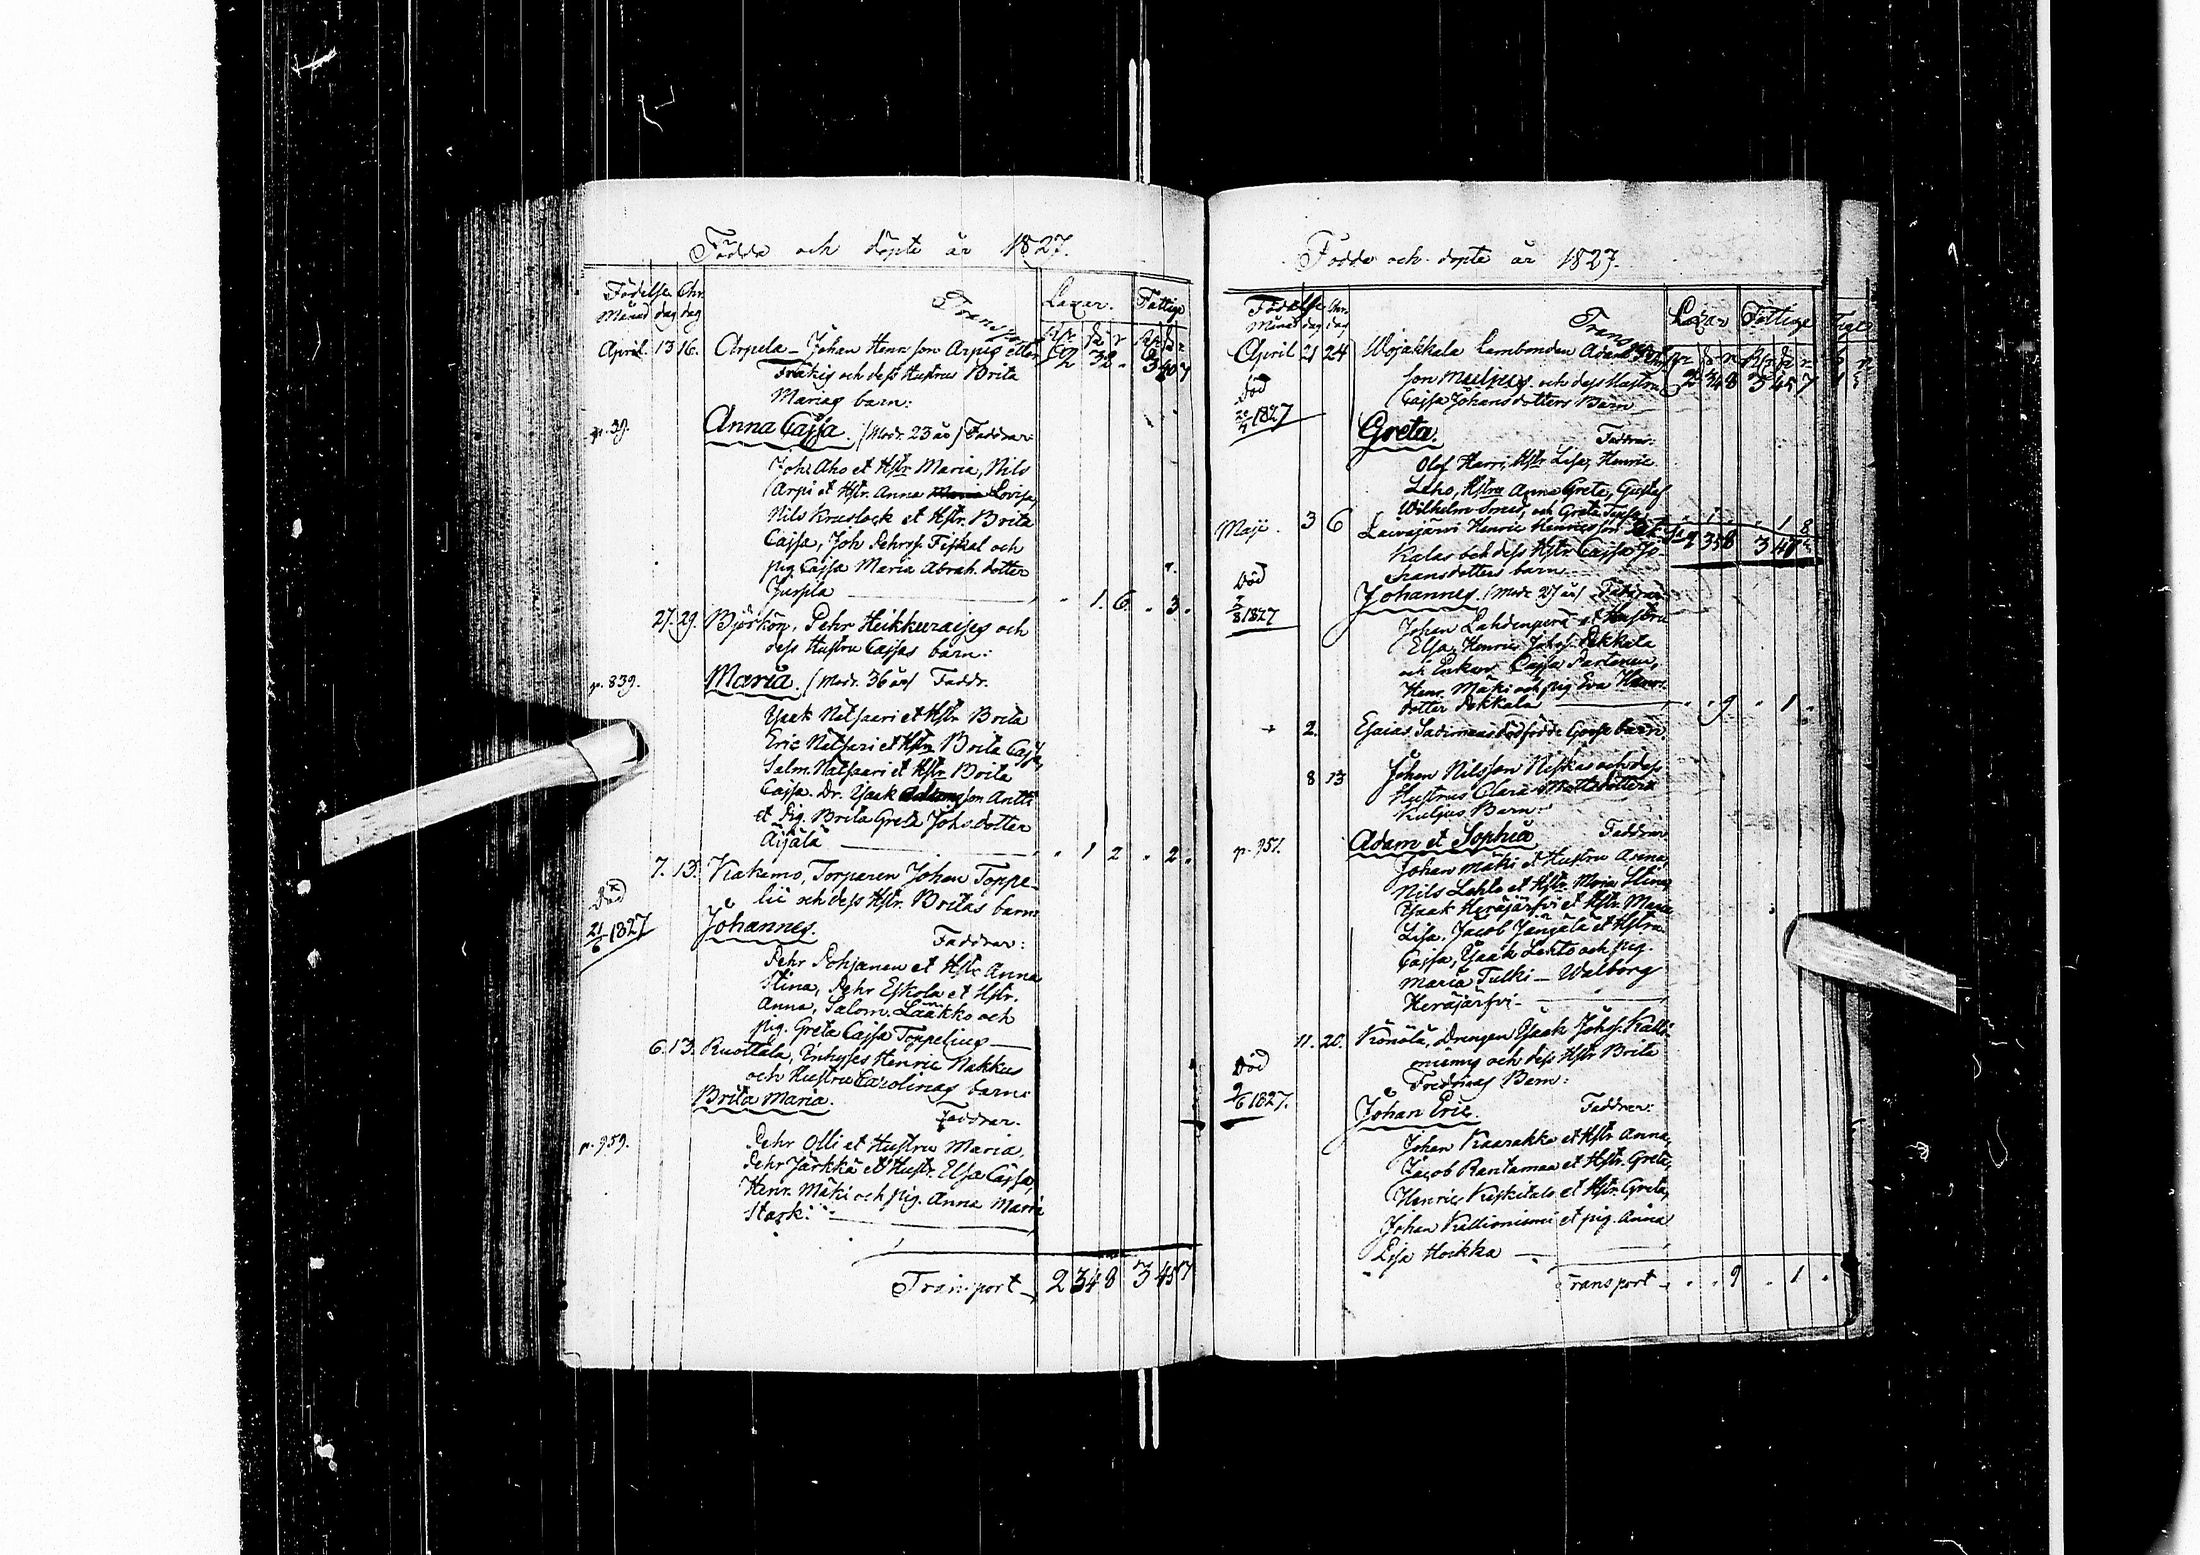 Födde och döpte år 1827.
Födelse Chr.
Månad dag dag
Transport
Lazar. Fattige
April. 13 16. Arpela – Johan Henr. son Arpis eller
2 32 - 3 40 7
Frakig och dess Hustrus Brita
Marias barn:
p. 39. Anna Cajsa. (Modr. 23 år) Faddrar:
Joh. Aho et Hstr Maria, Nils
Arpi et Hstr. Anna Lovisa,
Nils Kruslock et Hstr. Brita
Cajsa, Joh Pehrss. Fiskal och
pig Cajsa Maria Abrah. dotter
- 1. 6 - 3 -
27. 29. Björkön, Pehr Heikkuraises och
dess Hustru Cajsas barn:
p. 839. Maria. (Modr. 36 år) Faddr.
Isaak Nätsaari et Hstr Brita
Eric Nätsari et Hstr Brita Cajsa,
Salm. Nätsaari et Hstr. Brita
Cajsa. Dr. Isaak Adamsson Antti
et Pig. Brita Greta Johs. dotter
Äijälä - 1 2 - 2 -
7. 13. Kakamo, Torparen Johan Toppe-
lii och dess Hstr. Britas barn
Död
21/6 1827
Johannes.
Faddrar:
Pehr Pohjanen et Hstr Anna
Stina, Pehr Eskola et Hstr.
Anna, Salom. Laakko och
pig. Greta Cajsa Toppelius
6. 13. Ruottala, Inhyses Henric Nakkus
och Hustru Carolinas barn:
Brita Maria.
Faddrar.
p. 959. Pehr Olli et Hustru Maria,
Pehr Järkkä et Hustr. Elsa Cajsa,
Henr. Mäki och pig. Anna Maria
Stark.
Transport 2 34 8 3 45 7
Födde och döpte år 1827.
Födelse Chr.
Månad dag dag
Transport
Lazar Fattige
April 21 24 Wojakkala Lambonden Adam
2 34 8 3 45 7
och dess Hustru
Cajsa Johansdotters Barn
Död
1827
Greta. Faddrar:
Olof Harri, Hstr Lisa, Henric
Leho, Hstru Anna Greta, Gustaf
Wilhelm Smed, och Greta
Maji. 3 6 Laivajärvi Henric Henricsson
Kalas och dess Hstr Cajsa Jo-
hansdotters barn
Död
1827
Johannes. (Modr 27 år) Faddrar
Johan Lahdenperä et Hustru
Elsa, Henric Johss. Pekkala
och Enkan Cajsa Partanen,
Henr. Mäki och pig Eva Henr.
dotter Pekkala - - 9 - 1 -
2. Esaias Sadinmaas dödfödde Gosse barn.
8 13 Johan Nilsson Niskas och dess
Hustrus Clara Mattsdotters
Kuljus Barn:
p. 957. Adam et Sophia Faddrar
Johan Mäki et Hustru Anna,
Nils Lehto et Hstr. Maria Stina,
Isaak Heräjärfvi et Hstr. Maria
Lisa. Jacob Jängälä et Hstru
Cajsa, Isaak Lehto och pig.
Maria Tulki – Walborg
Heräjärfvi –
11. 20. Könölä, Drengen Isaak Johss. Kalli-
oniemis och dess Hstr Brita
Fredricas Barn:
Död
9/6 1827.
Johan Eric. Faddrar:
Johan Kaarakka et Hstr Anna,
Jacob Rantamaa et Hstr. Greta,
Henric Keskitalo et Hstr. Greta,
Johan Kallioniemi et pig. Anna
Lisa Hoikka
Transport - - 9 - 1 -